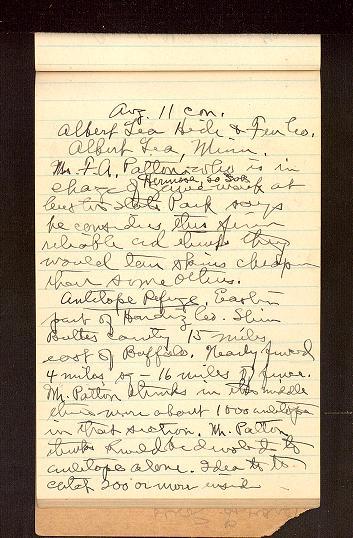 Aug. 11 con.
Albert Lea Hide & Fur Co.
Albert Lea, Minn.
Mr. F. A. Patton who is in
Hermosa, So Dak
charge of work at
Custer State Park says
he considers this firm
reliable and thinks they
would tan skins cheaper
than some others.
Antilope Refuge. Eastern
part of Harding Co. Slim
Buttes County 15 miles
east of Buffalo. Nearly fenced
4 miles sq - 16 miles of fence.
Mr. Patton thinks in the middle
there were about 1000 antilope
in that section. Mr. Patton
thinks should be devoted to
antilope alone. Idea to to
catch 200 or more inside